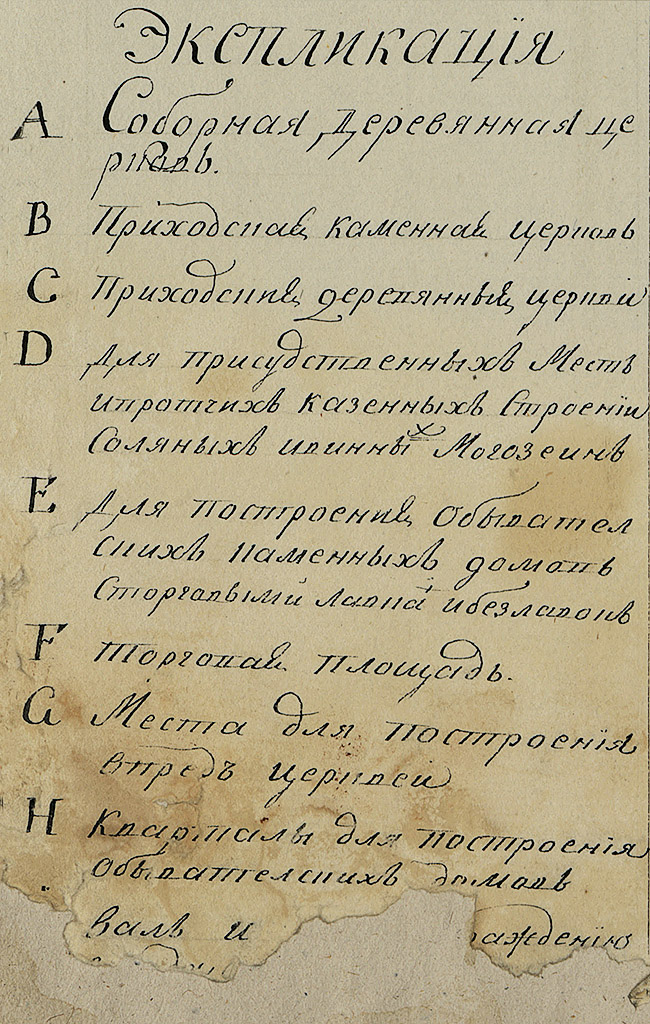 Экспликацїя
A Соборная деревянная це
рковь.
B Приходская каменная церковь
C Приходския деревянныя церкви
D Для присудственныхъ Местъ
ипротчихъ казенныхъ Строении
Соляныхъ ивинныхъ Могозеинъ
E Для построения Обывател
скихъ каменныхъ домовъ
Сторговыми лавка ибезлавокъ
F торговая площадь.
G Места для построенїя
впредъ церквеи
H Кварталы для построенїя
Обывателскихъ домовъ
валъ и